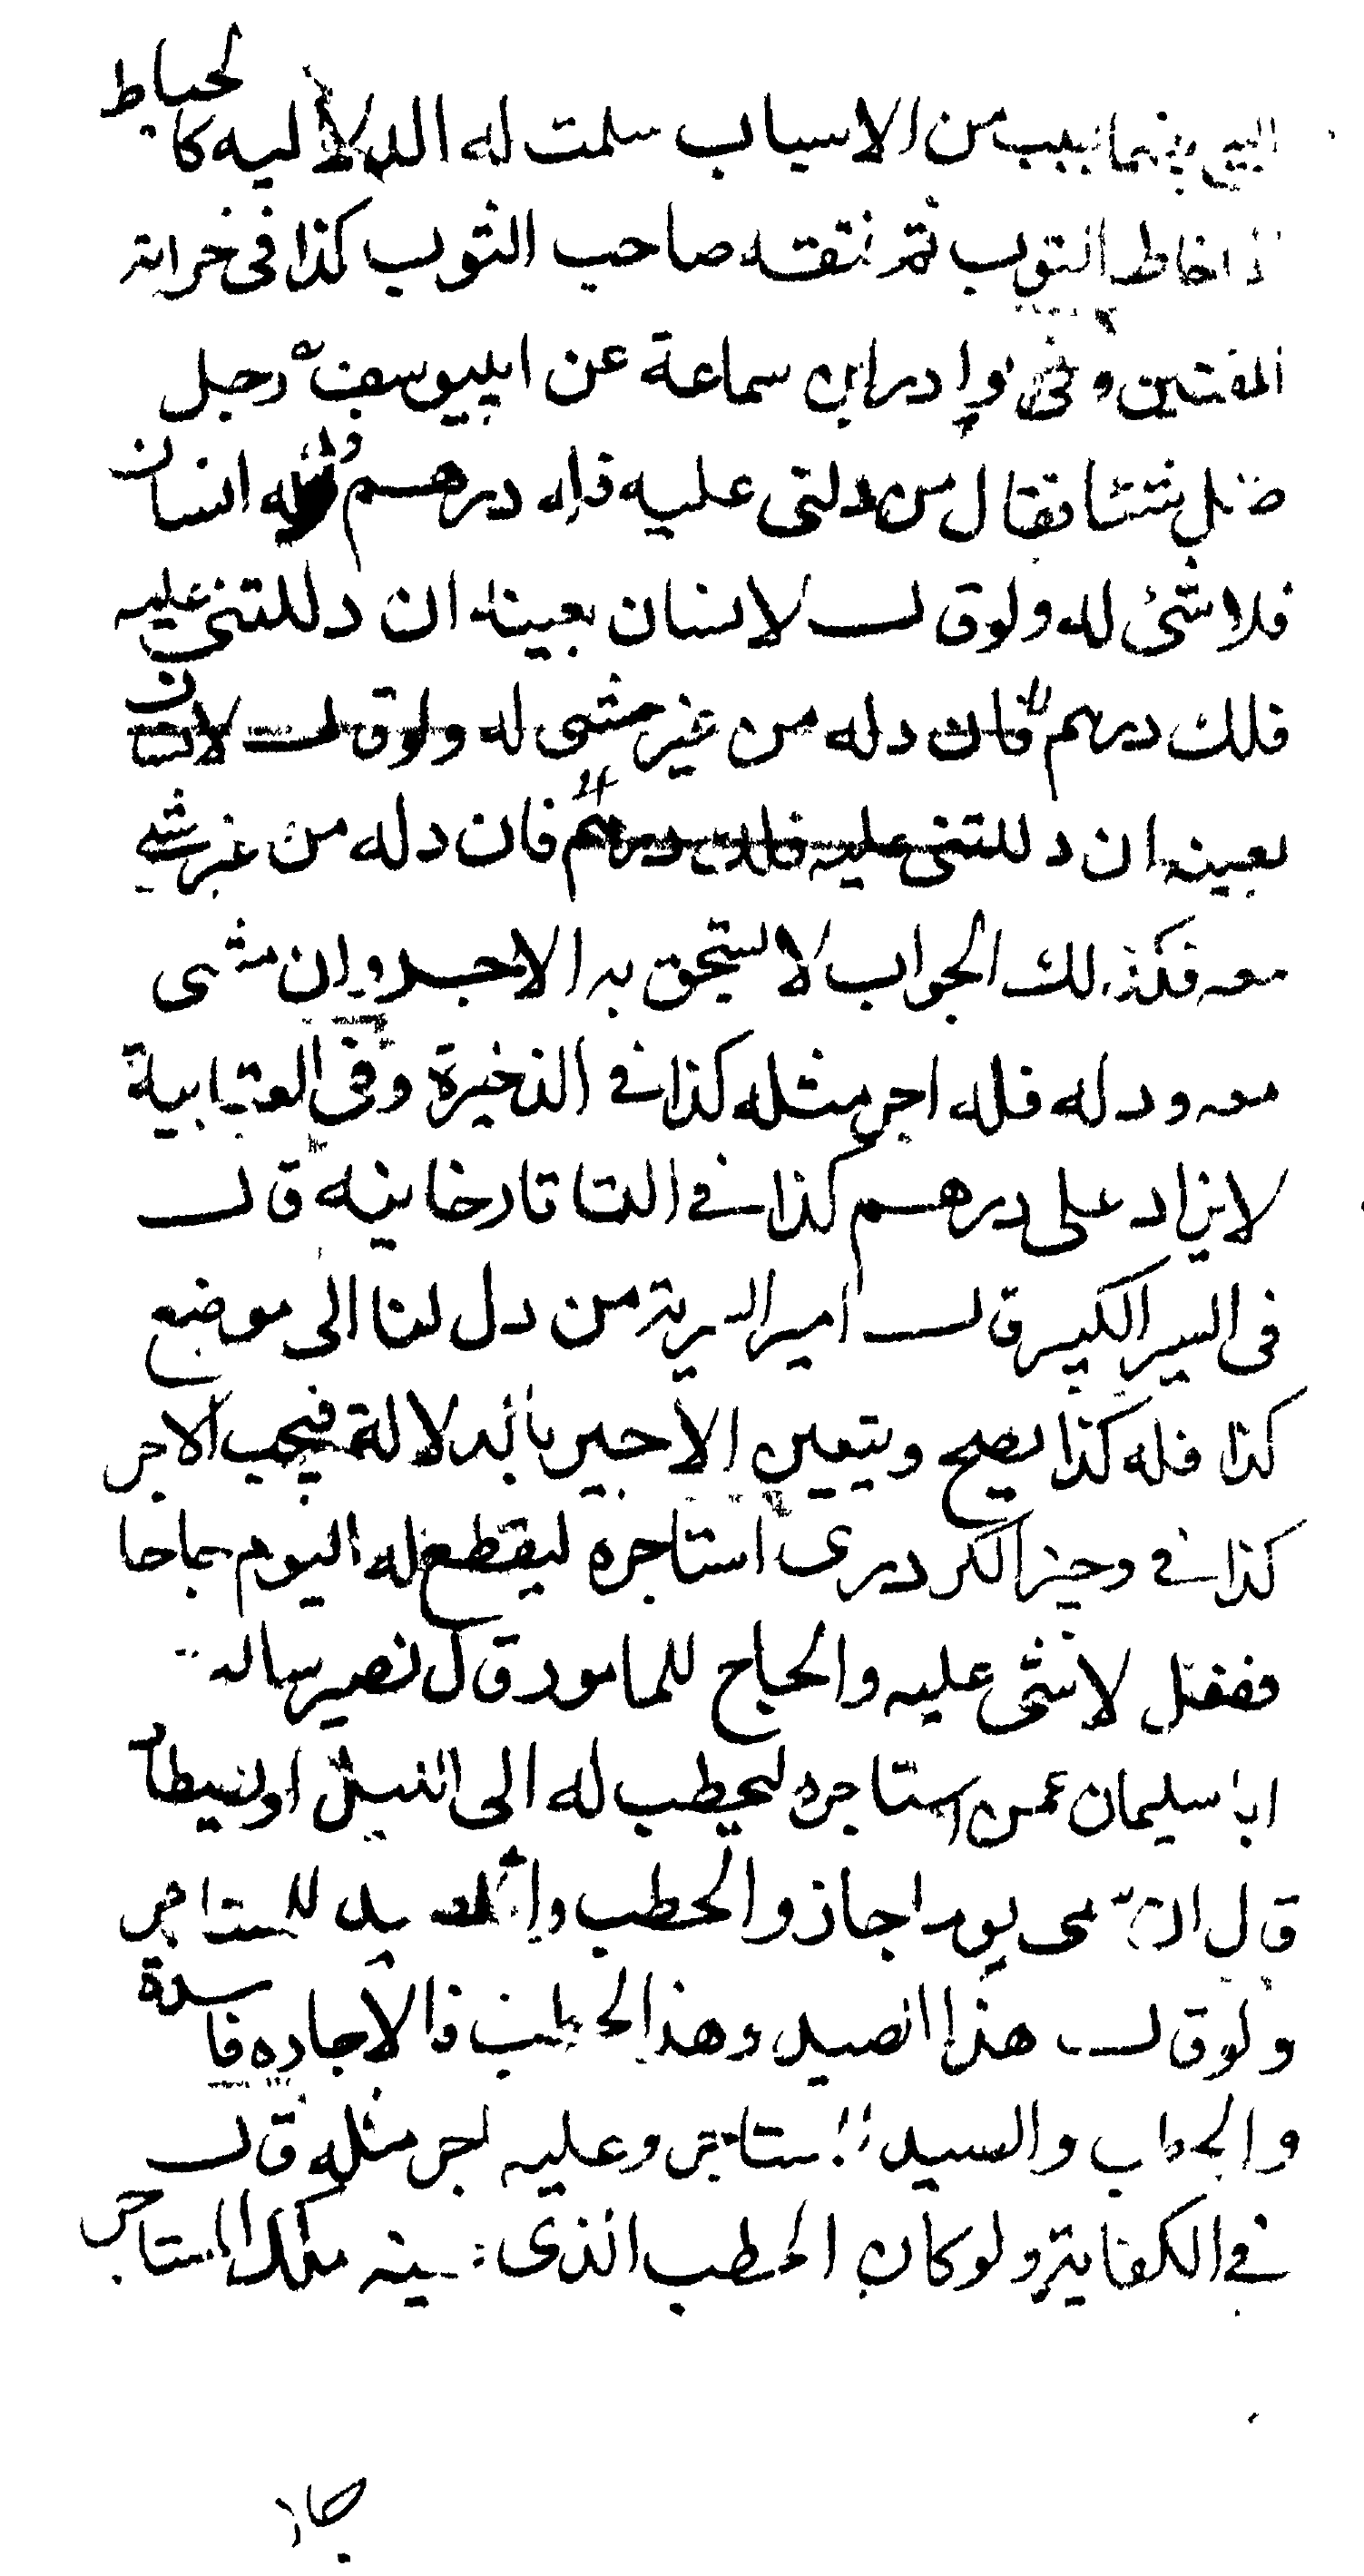 البيع بينهما بسبب من الاسباب سلمت له الدلالية كالخياط
اذا خاط الثوب ثم فتقه صاحب الثوب كذا فى خزانة
المفتين وفى نوادر ابن سماعة عن ابييوسف رجل
ضل شئا فقال من دلنى عليه فله درهم فدله انسان
فلا شئ له ولوقال لانسان بعينه ان دللتنى عليه
فلك درهم فان دله من غير مشى له ولوقال لانسان
بعينه ان دللتنى عليه فلك درهم فان دله من غير شى
معه فكذلك الجواب لا يستحق به الاجر وان مشى
معه ودله فله اجر مثله كذا فى الذخيرة وفى العتابية
لا يزاد على درهم كذا فى التاتارخانيه قال
فى السير الكبير قال امير السرية من دل لنا الى موضع
كذا فله كذا يصح ويتعين الاجير بالدلالة فيجب الاجر
كذا فى وجيز الكردرى استاجره ليقطع له اليوم حاجا
ففعل لا شى عليه والحاج للمامور قال نصير سالت
ابا سليمان عمن استاجره ليحطب له الى الليل اوليصطاد
قال ان سمى يوما جاز والحطب والصيد للمستاجر
ولوقال هذا الصيد وهذا الحطب فالاجاره فاسدة
والحطب والصيد للمستاجر وعليه اجر مثله قال
فى الكفاية ولوكان الحطب الذى عينه ملك المستاجر